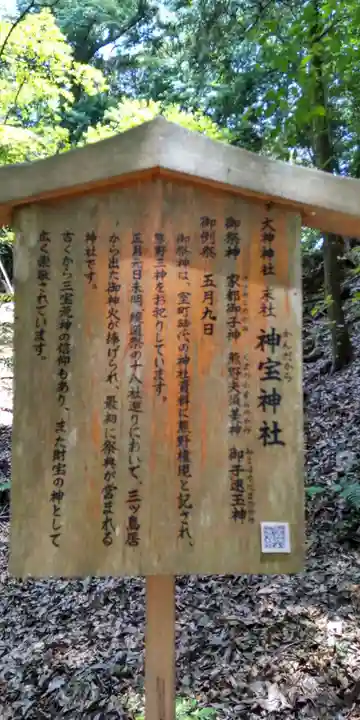 大神神社 末社 神宝神社
かんだから
御祭神 家都御子神 熊野夫須美神 御子速玉神
御例祭 五月九日
御祭神は、室町時代の神社資料に熊野権現と記され、
熊野三神をお祀りしています。
正月元日未明、繞道祭の十八社巡りにおいて、三ッ鳥居
から出た御神火が捧げられ、最初に祭典が営まれる
神社です。
古くから三宝荒神の信仰もあり、また財宝の神として
広く崇敬されています。